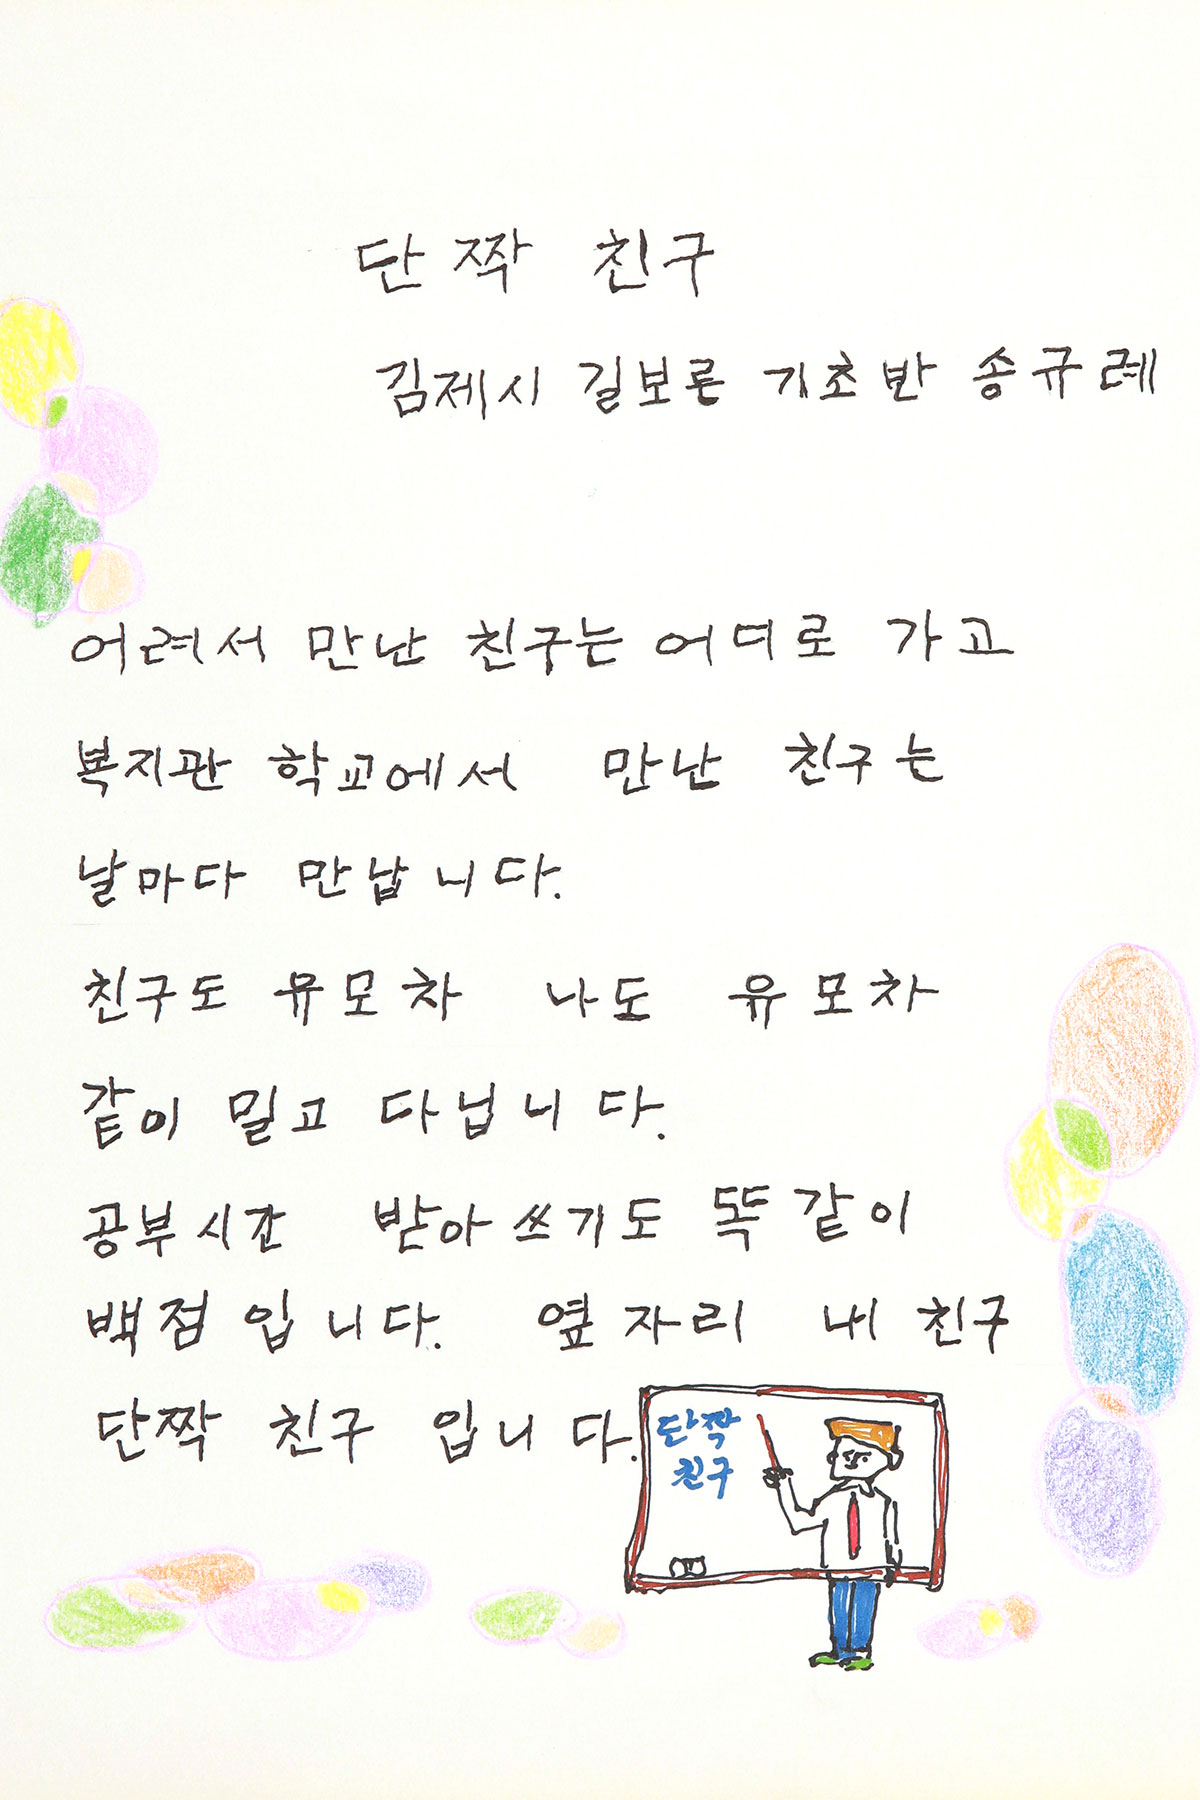 단짝 친구
김제시 길보른 기초반 송규례
어려서 만난 친구는 어디로 가고
복지관 학교에서 만난 친구는
날마다 만납니다.
친구도 유모차 나도 유모차
같이 밀고 다닙니다.
공부시간 받아쓰기도 똑같이
백점입니다. 옆자리 내 친구
단짝 친구 입니다.
단짝
친구